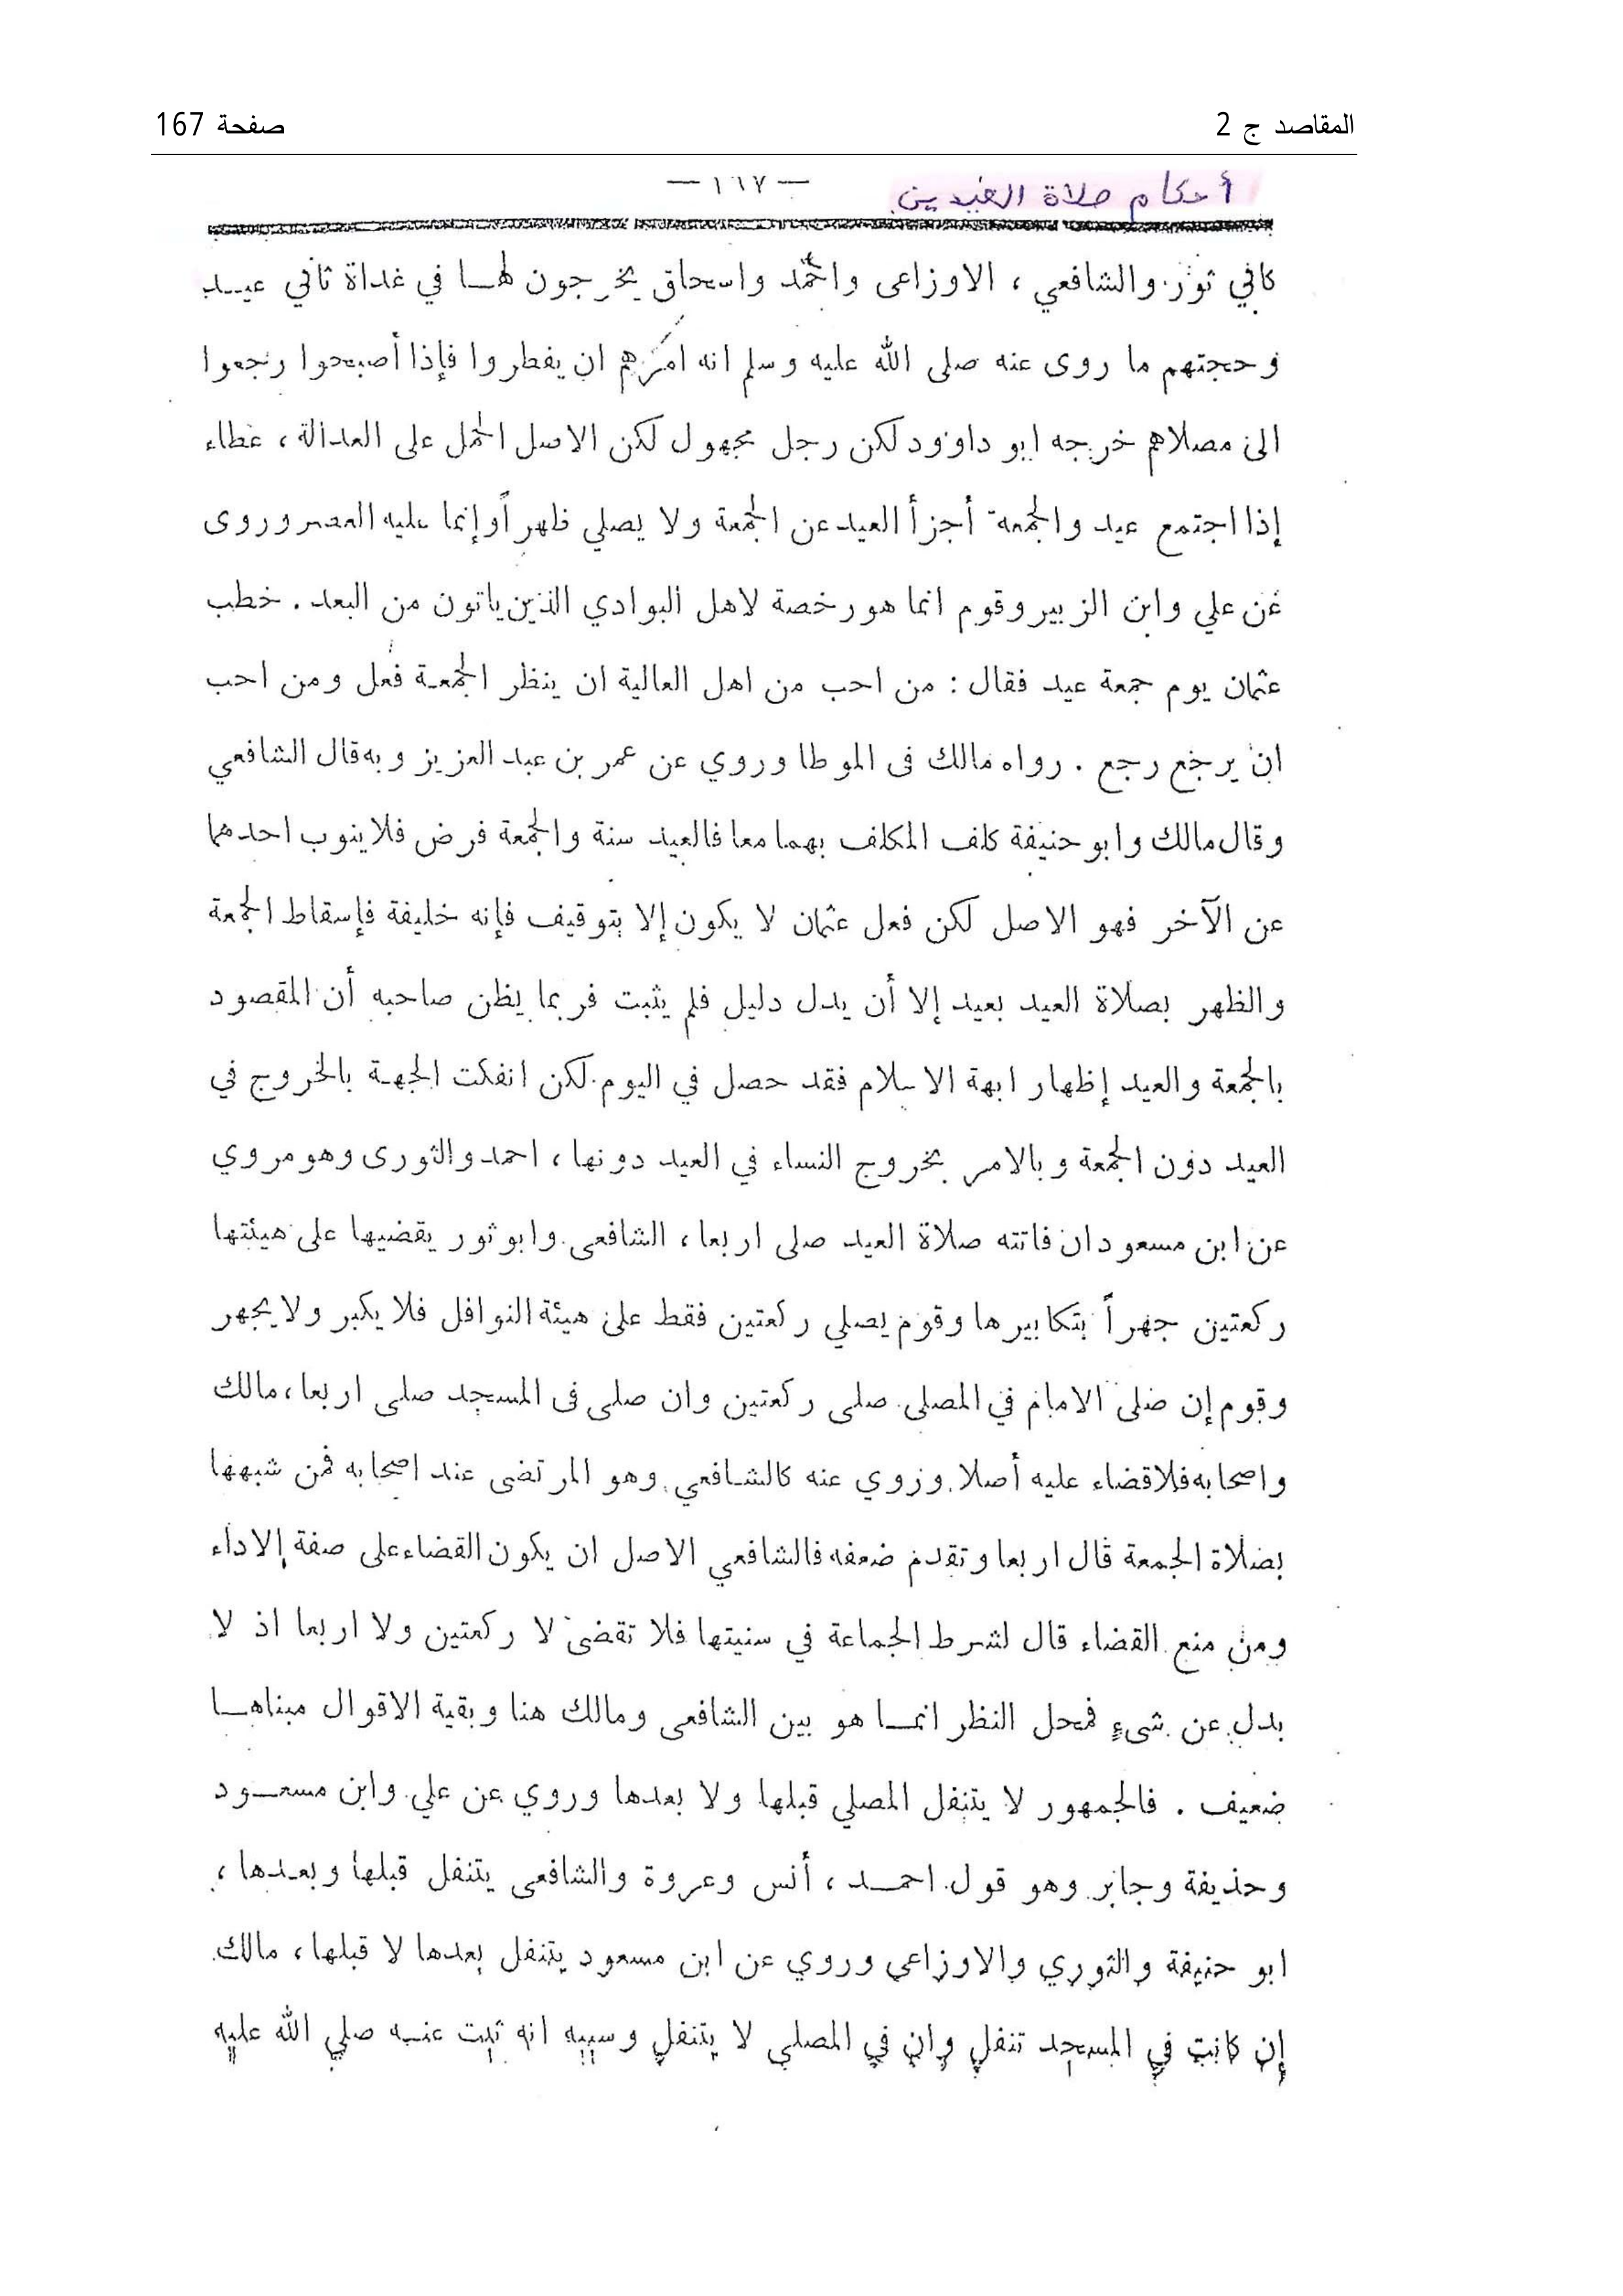 المقاصد ج 2 صفحة 167
أحكام صلاة العيدين — ١٦٧ —
كابي ثور والشافعي ، الاوزاعى واحمد واسحاق يخرجون لهـا في غداة ثاني عيـد
وحجتهم ما روى عنه صلى الله عليه وسلم انه امرهم ان يفطروا فإذا أصبحوا رجعوا
الى مصلاهم خرجه ابو داوود لكن رجل مجهول لكن الاصل الحمل على العدالة ، عطاء
إذا اجتمع عيد والجمعة أجزأ العيد عن الجمعة ولا يصلي ظهراً وإنما عليه العصر وروى
عن علي وابن الزبير وقوم انما هو رخصة لاهل البوادي الذين ياتون من البعد . خطب
عثمان يوم جمعة عيد فقال : من احب من اهل العالية ان ينظر الجمعـة فعل ومن احب
ان يرجع رجع . رواه مالك فى الموطا وروي عن عمر بن عبد العزيز وبه قال الشافعي
وقال مالك وابو حنيفة كلف المكلف بهما معا فالعيد سنة والجمعة فرض فلا ينوب احدهما
عن الآخر فهو الاصل لكن فعل عثمان لا يكون إلا بتوقيف فإنه خليفة فإسقاط الجمعة
والظهر بصلاة العيد بعيد إلا أن يدل دليل فلم يثبت فربما يظن صاحبه أن المقصود
بالجمعة والعيد إظهار ابهة الاسلام فقد حصل في اليوم لكن انفكت الجهـة بالخروج في
العيد دون الجمعة وبالامر بخروج النساء في العيد دونها ، احمد والثورى وهو مروي
عن ابن مسعود ان فاتته صلاة العيد صلى اربعا ، الشافعى وابو ثور يقضيها على هيئتها
ركعتين جهراً بتكابيرها وقوم يصلي ركعتين فقط على هيئة النوافل فلا يكبر ولا يجهر
وقوم إن صلى الامام في المصلى صلى ركعتين وان صلى فى المسجد صلى اربعا ، مالك
واصحابه فلا قضاء عليه أصلا وروي عنه كالشـافعي وهو المرتضى عند اصحابه فمن شبهها
بصلاة الجمعة قال اربعا وتقدم ضعفه فالشافعي الاصل ان يكون القضاء على صفة الاداء
ومن منع القضاء قال لشرط الجماعة في سنيتها فلا تقضى لا ركعتين ولا اربعا اذ لا
بدل عن شىءٍ فمحل النظر انمـا هو بين الشافعى ومالك هنا وبقية الاقوال مبناهـا
ضعيف . فالجمهور لا يتنفل المصلي قبلها ولا بعدها وروي عن علي وابن مسعـود
وحذيفة وجابر وهو قول احمـد ، أنس وعروة والشافعى يتنفل قبلها وبعـدها ،
ابو حنيفة والثوري والاوزاعي وروي عن ابن مسعود يتنفل بعدها لا قبلها ، مالك
إن كانت في المسجد تنفل وان في المصلى لا يتنفل وسببه انه ثبت عنـه صلي الله عليه